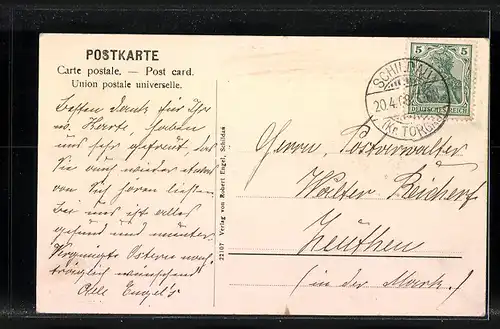 POSTKARTE
Carte postale. — Post card.
Union postale universelle.
Besten Dank für Ihre
w. Karte, haben
uns sehr gefreut, daß
Sie auch wieder etwas
von Sich hören ließen.
Bei uns ist alles
gesund und munter.
Vergnügte Ostern nach-
träglich wünschend
Alle Engel's
22107 Verlag von Robert Engel, Schildau
5 5
DEUTSCHES REICH
SCHILDAU
20.4.08
(Kr. TORGAU)
Herrn Postverwalter
Walter Reichert
Zeuthen
(in der Mark.)